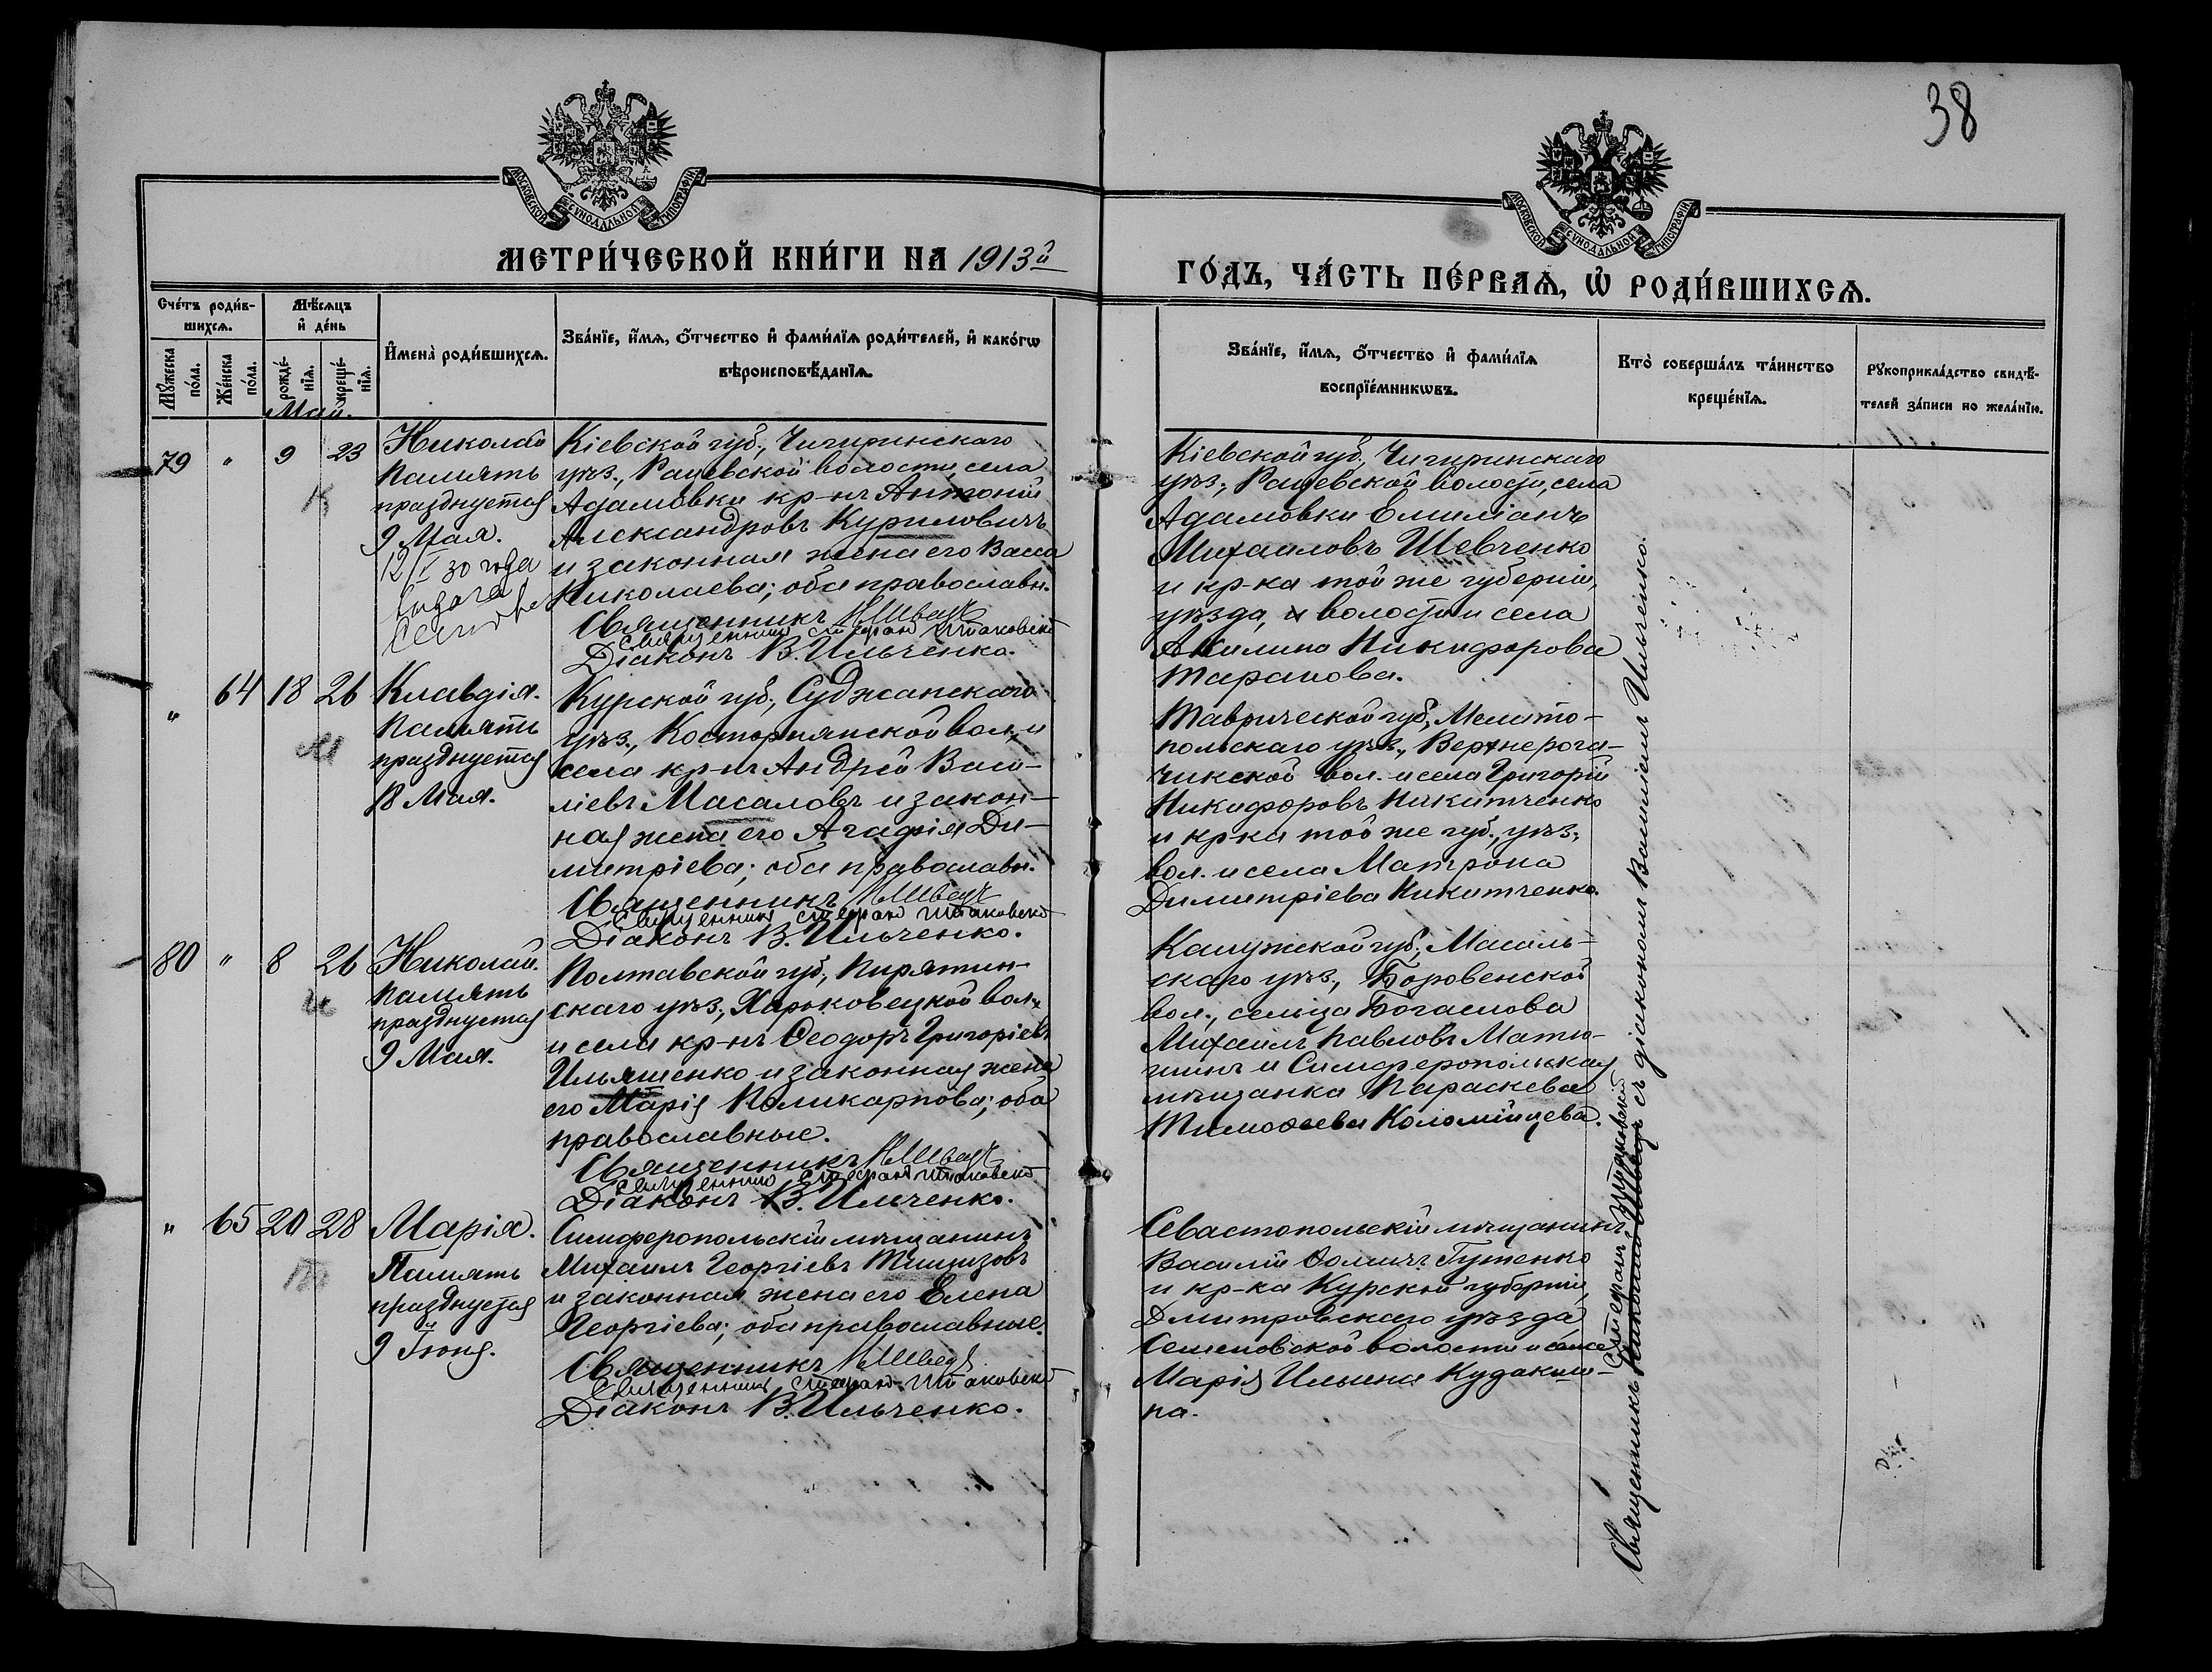 38
МОСКОВСКОЙ СУНОДАЛЬНОЙ ТИПОГРАФІИ
МОСКОВСКОЙ СУНОДАЛЬНОЙ ТИПОГРАФІИ
МЕТРИ́ЧЕСКОЙ КНИ́ГИ НА 1913й
ГО́ДЪ, ЧА́СТЬ ПЕ́РВАѦ, Ѡ҆ РОДИ́ВШИХСѦ.
Сче́тъ роди́в-
шихсѧ.
Мѣ́сѧцъ
и҆ де́нь
Мꙋ́жеска
по́ла.
Же́нска
по́ла.
рожде́-
нїѧ.
креще́-
нїѧ.
И҆мена̀ роди́вшихсѧ.
Зва́нїе, и҆́мѧ, ѻ҆́тчество и҆ фами́лїѧ роди́телей, и҆ како́гѡ
вѣроисповѣ́данїѧ.
Зва́нїе, и҆́мѧ, ѻ҆́тчество и҆ фами́лїѧ
воспрїе́мникѡвъ.
Кто̀ соверша́лъ та́инство
креще́нїѧ.
Рꙋкоприкла́дство свидѣ́-
телей за́писи по жела́нїю.
Май.
79 " 9 23
Николай
Память
празднуется
9 Мая.
12/V 30 года
Кіевской губ., Чигиринскаго
уѣз., Рацевской волости, села
Адамовки кр-нъ Антоній
Александровъ Куриловичъ
и законная жена его Васса
Николаева; оба православн.
Священникъ Н Швецъ
Священник Стефан Штаковскій
Діаконъ В. Ильченко.
Кіевской губ., Чигиринскаго
уѣз., Рацевской волости, села
Адамовки Емиліанъ
Михаиловъ Шевченко
и кр-ка той же губерніи,
уѣзда, и волости и села
Акилина Никифорова
Таранова.
" 64 18 26
Клавдія.
Память
празднуется
18 Мая.
Курской губ., Суджанскаго
уѣз., Косторнянской вол. и
села кр-нъ Андрей Васи-
ліевъ Масаловъ и закон-
ная жена его Агафія Ди-
митріева; оба православн.
Священникъ Н Швецъ
Священник Стефан Штаковскій
Діаконъ В. Ильченко.
Таврической губ., Мелито-
польскаго уѣз., Верхнерога-
чикской вол. и села Григорій
Никифоровъ Никитченко
и кр-ка той же губ., уѣз.,
вол. и села Матрона
Димитріева Никитченко.
80 " 8 26
Николай.
Память
празднуется
9 Мая.
Полтавской губ., Пирятин-
скаго уѣз., Харьковецкой вол.
и села кр-нъ Ѳеодоръ Григоріевъ
Ильяшенко и законная жена
его Марія Поликарпова; оба
православные.
Священникъ Н Швецъ
Священник Стефан Штаковскій
Діаконъ В. Ильченко.
Калужской губ., Масаль-
скаго уѣз., Боровенской
вол., сельца Богаслова
Михаилъ Павловъ Мати-
шинъ и Симферопольская
мѣщанка Параскева
Тимоѳеева Коломійцева.
" 65 20 28
Марія.
Память
празднуется
9 Іюня.
Симферопольскій мѣщанинъ
Михаилъ Георгіевъ Тишизовъ
и законная жена его Елена
Георгіева; оба православные.
Священникъ Н Швецъ
Священник Стефан Штаковскій
Діаконъ В. Ильченко.
Севастопольскій мѣщанинъ
Василій Ѳомичъ Гутенко
и кр-ка Курской губерніи,
Дмитровскаго уѣзда
Семеновской волости и села
Марія Ильина Кудаки-
на.
Стефанъ Штаковскій
Священникъ Николай Швецъ съ діакономъ Василіемъ Ильченко.